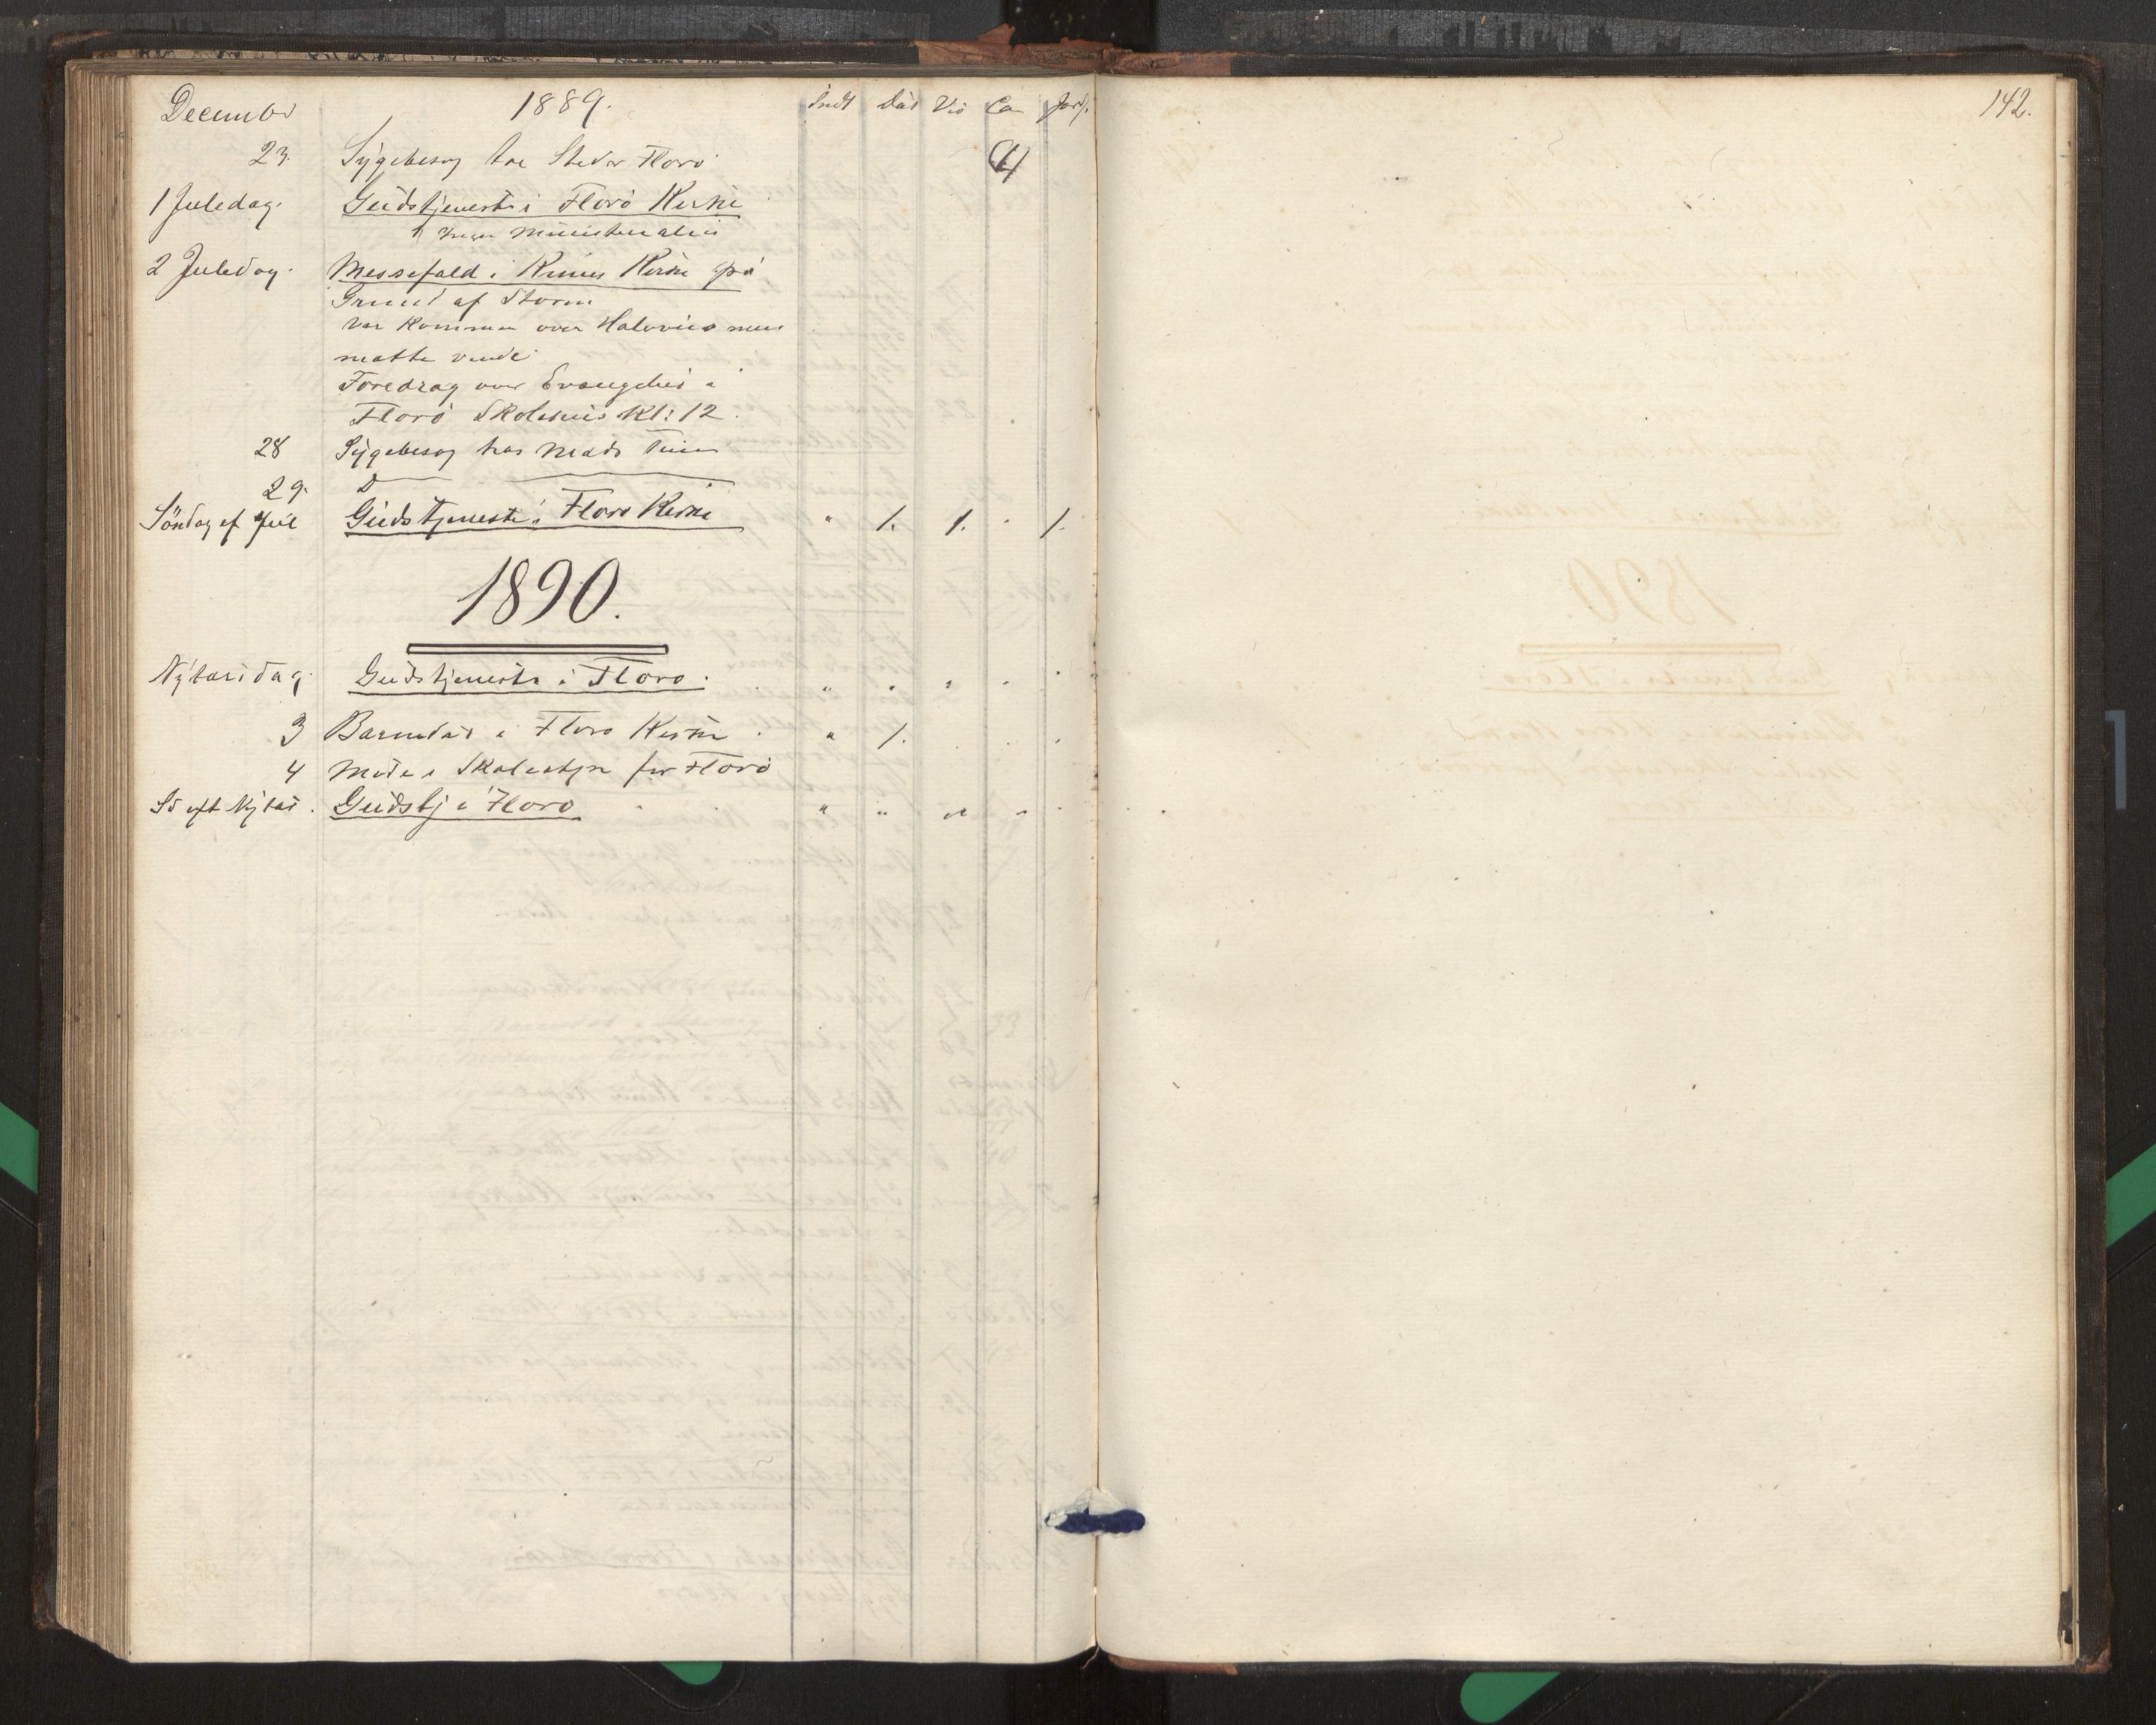 December 1889. Indt Daab Vis Com Jordf.
23. Sygebesøg tre Steder Florø 4
1 Juledag. Gudstjeneste i Florø Kirke
Ingen Ministerialia
2 Juledag. Messefald i Kinns Kirke paa
Grund af Storm
Var kommen over men
maatte vende
Foredrag over Evangeliet i
Florø Skolehus Kl: 12.
28 Sygebesøg hos Mads
29. D
Söndag ef Jul Gudstjeneste i Florø Kirke " 1. 1. " 1.
1890.
Nytaarsdag. Gudstjeneste i Florø. " " " " "
3 Barnedaab i Florø Kirke " 1. . . .
4 Møde i Skolestyre for Florø
Sö eft Nytaar. Gudstj i Florø " " " " "
142.